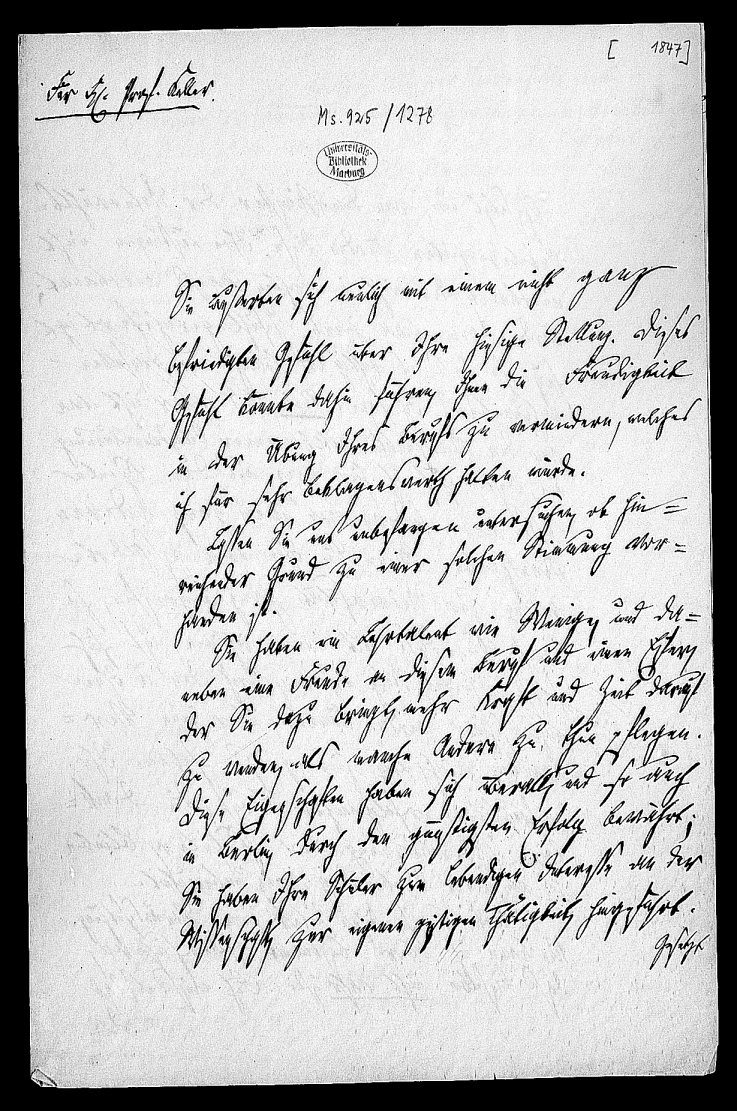 [ 1847]
Für H. Prof. Keller.
Ms. 925/1278
Universitäts-
Bibliothek
Marburg
Sie äußerten sich neulich mit einem nicht ganz
befriedigten Gefühl über Ihre hiesige Stellung. Dieses
Gefühl könnte dahin führen, Ihnen die Freudigkeit
in der Übung Ihres Berufs zu vermindern, welches
ich für sehr beklagenswerth halten würde.
Lassen Sie uns unbefangen untersuchen, ob hin=
reichender Grund zu einer solchen Stimmung vor=
handen ist.
Sie haben ein Lehrtalent wie Wenige, und da=
neben eine Freude an diesem Beruf und einen Eifer,
der Sie dazu bringt, mehr Kraft und Zeit darauf
zu wenden, als manche Andere zu thun pflegen.
Diese Eigenschaften haben sich überall, und so auch
in Berlin, durch den günstigsten Erfolg bewährt;
Sie haben Ihre Schüler zum lebendigen Interesse an der
Wissenschaft, zur eigenen geistigen Thätigkeit, hingeführt.
Gesetzt